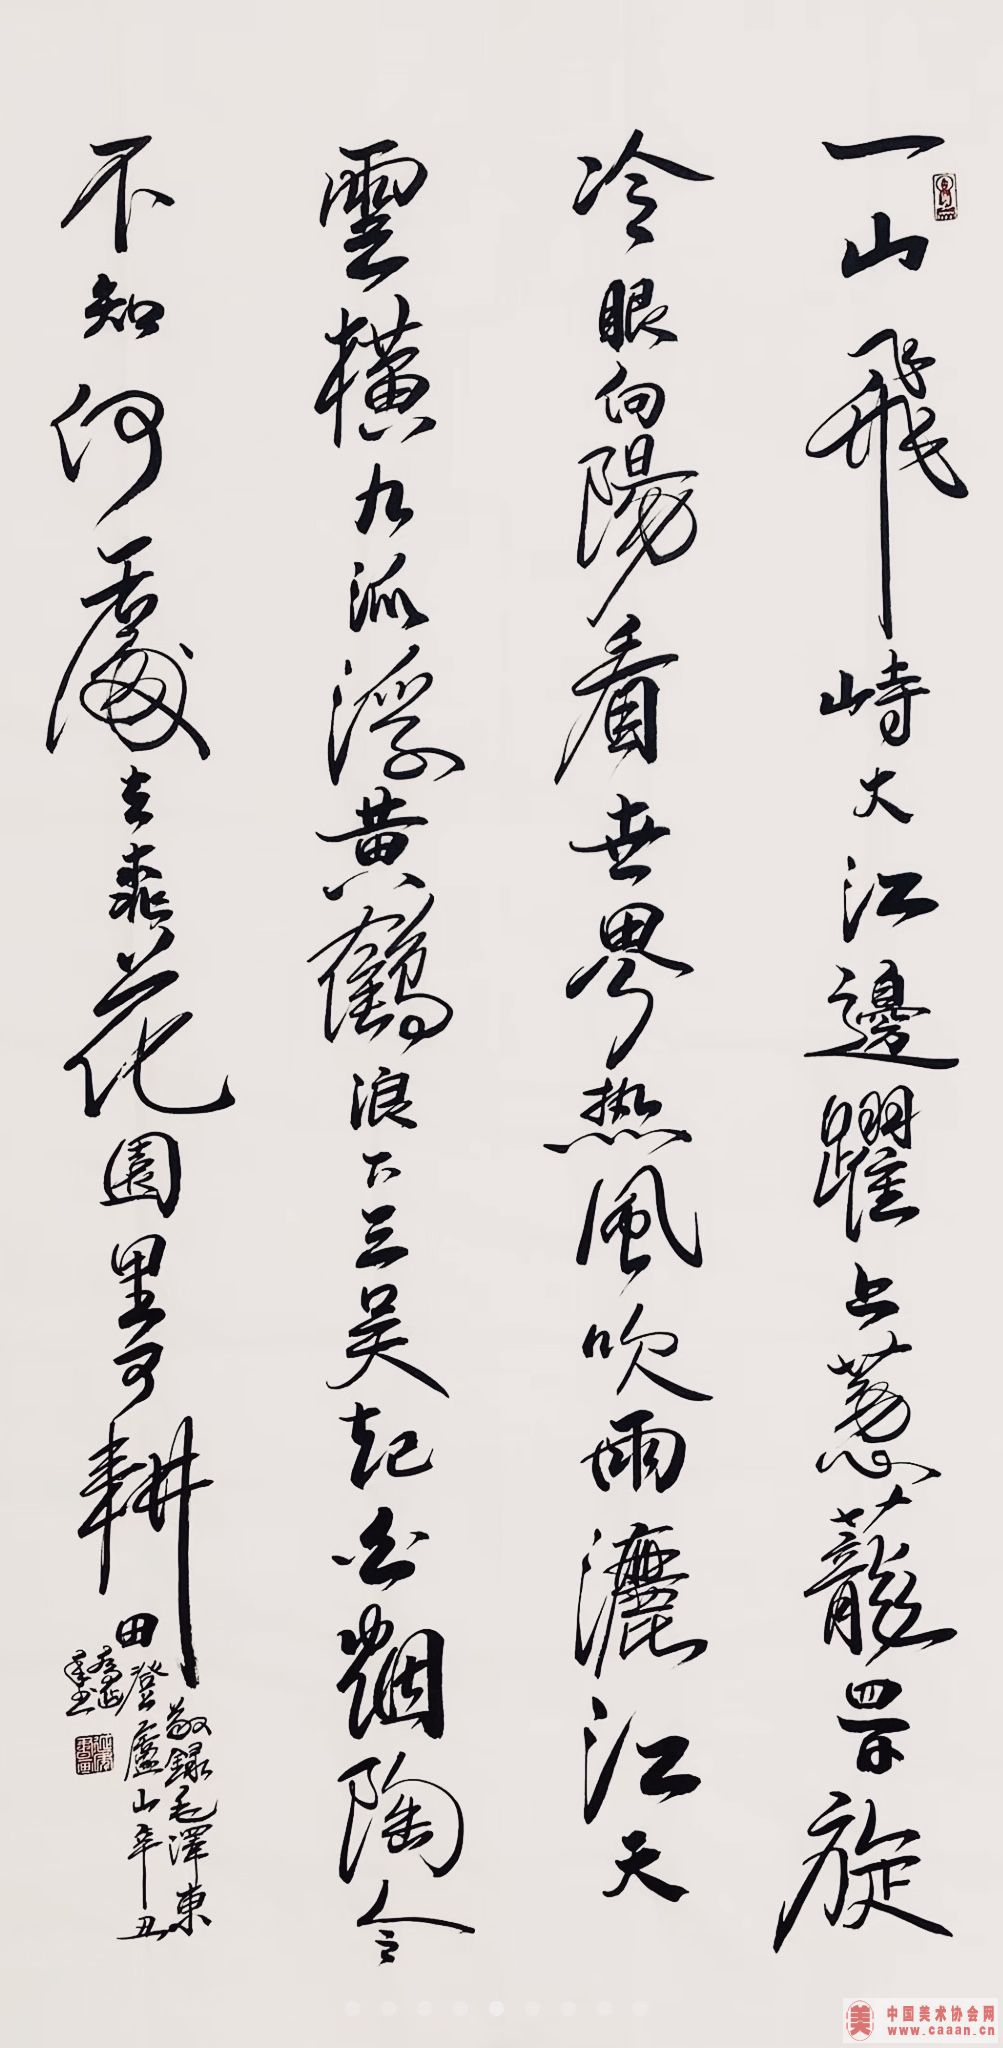 一山飛峙大江邊躍上蔥蘢四百旋
冷眼向陽看世界热風吹雨灑江天
雲橫九派浮黄鶴浪下三吴起白烟陶令
不知何處去桃花園里可耕田
敬録毛澤東
登廬山辛丑
中国美术协会网
www.caaan.cn